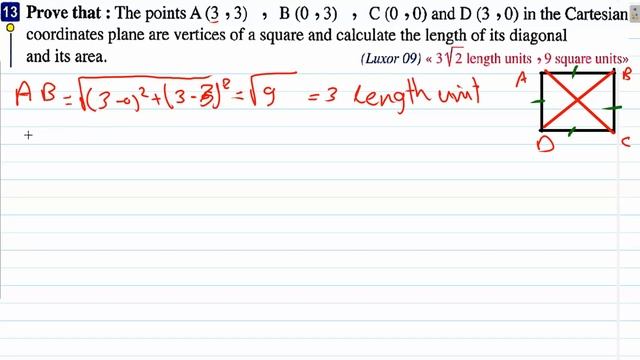 13 Prove that : The points A (3 , 3) , B (0 , 3) , C (0 , 0) and D (3 , 0) in the Cartesian
coordinates plane are vertices of a square and calculate the length of its diagonal
and its area. (Luxor 09) « 3√2 length units , 9 square units»
AB = √(3-0)²+(3-3)² = √9 = 3 length unit
A B
D C